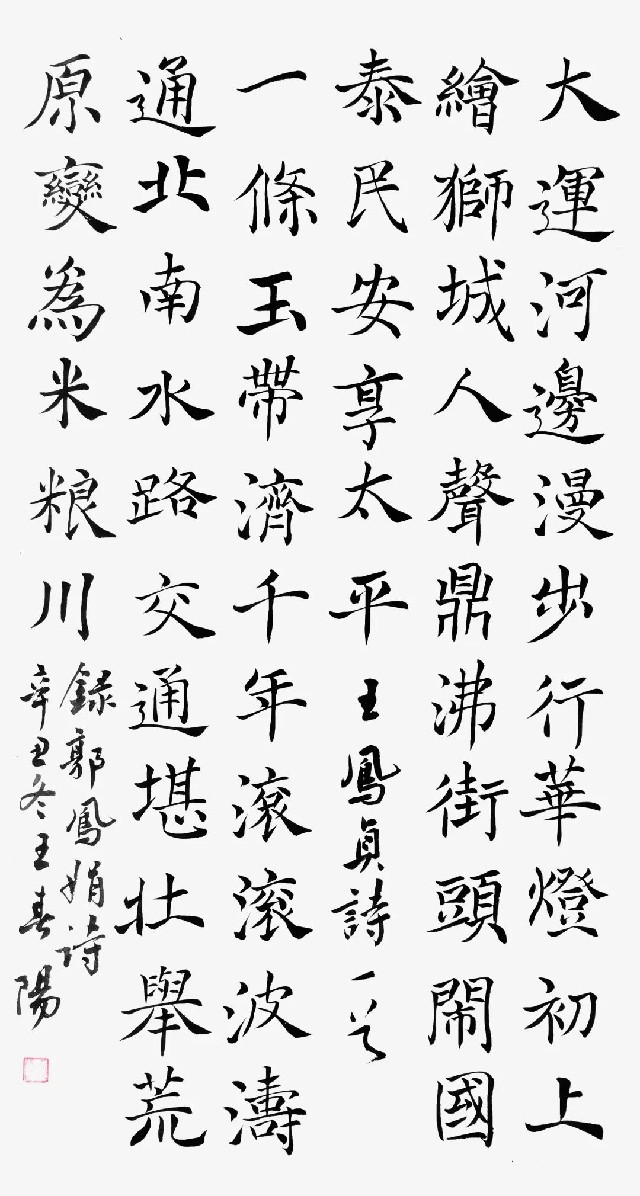 大運河邊漫步行華燈初上
繪獅城人聲鼎沸街頭鬧國
泰民安享太平 王鳳貞詩一首
一條玉帶濟千年滾滾波濤
通北南水路交通堪壯舉荒
原變為米粮川
録郭鳳娟詩
辛丑冬王春陽